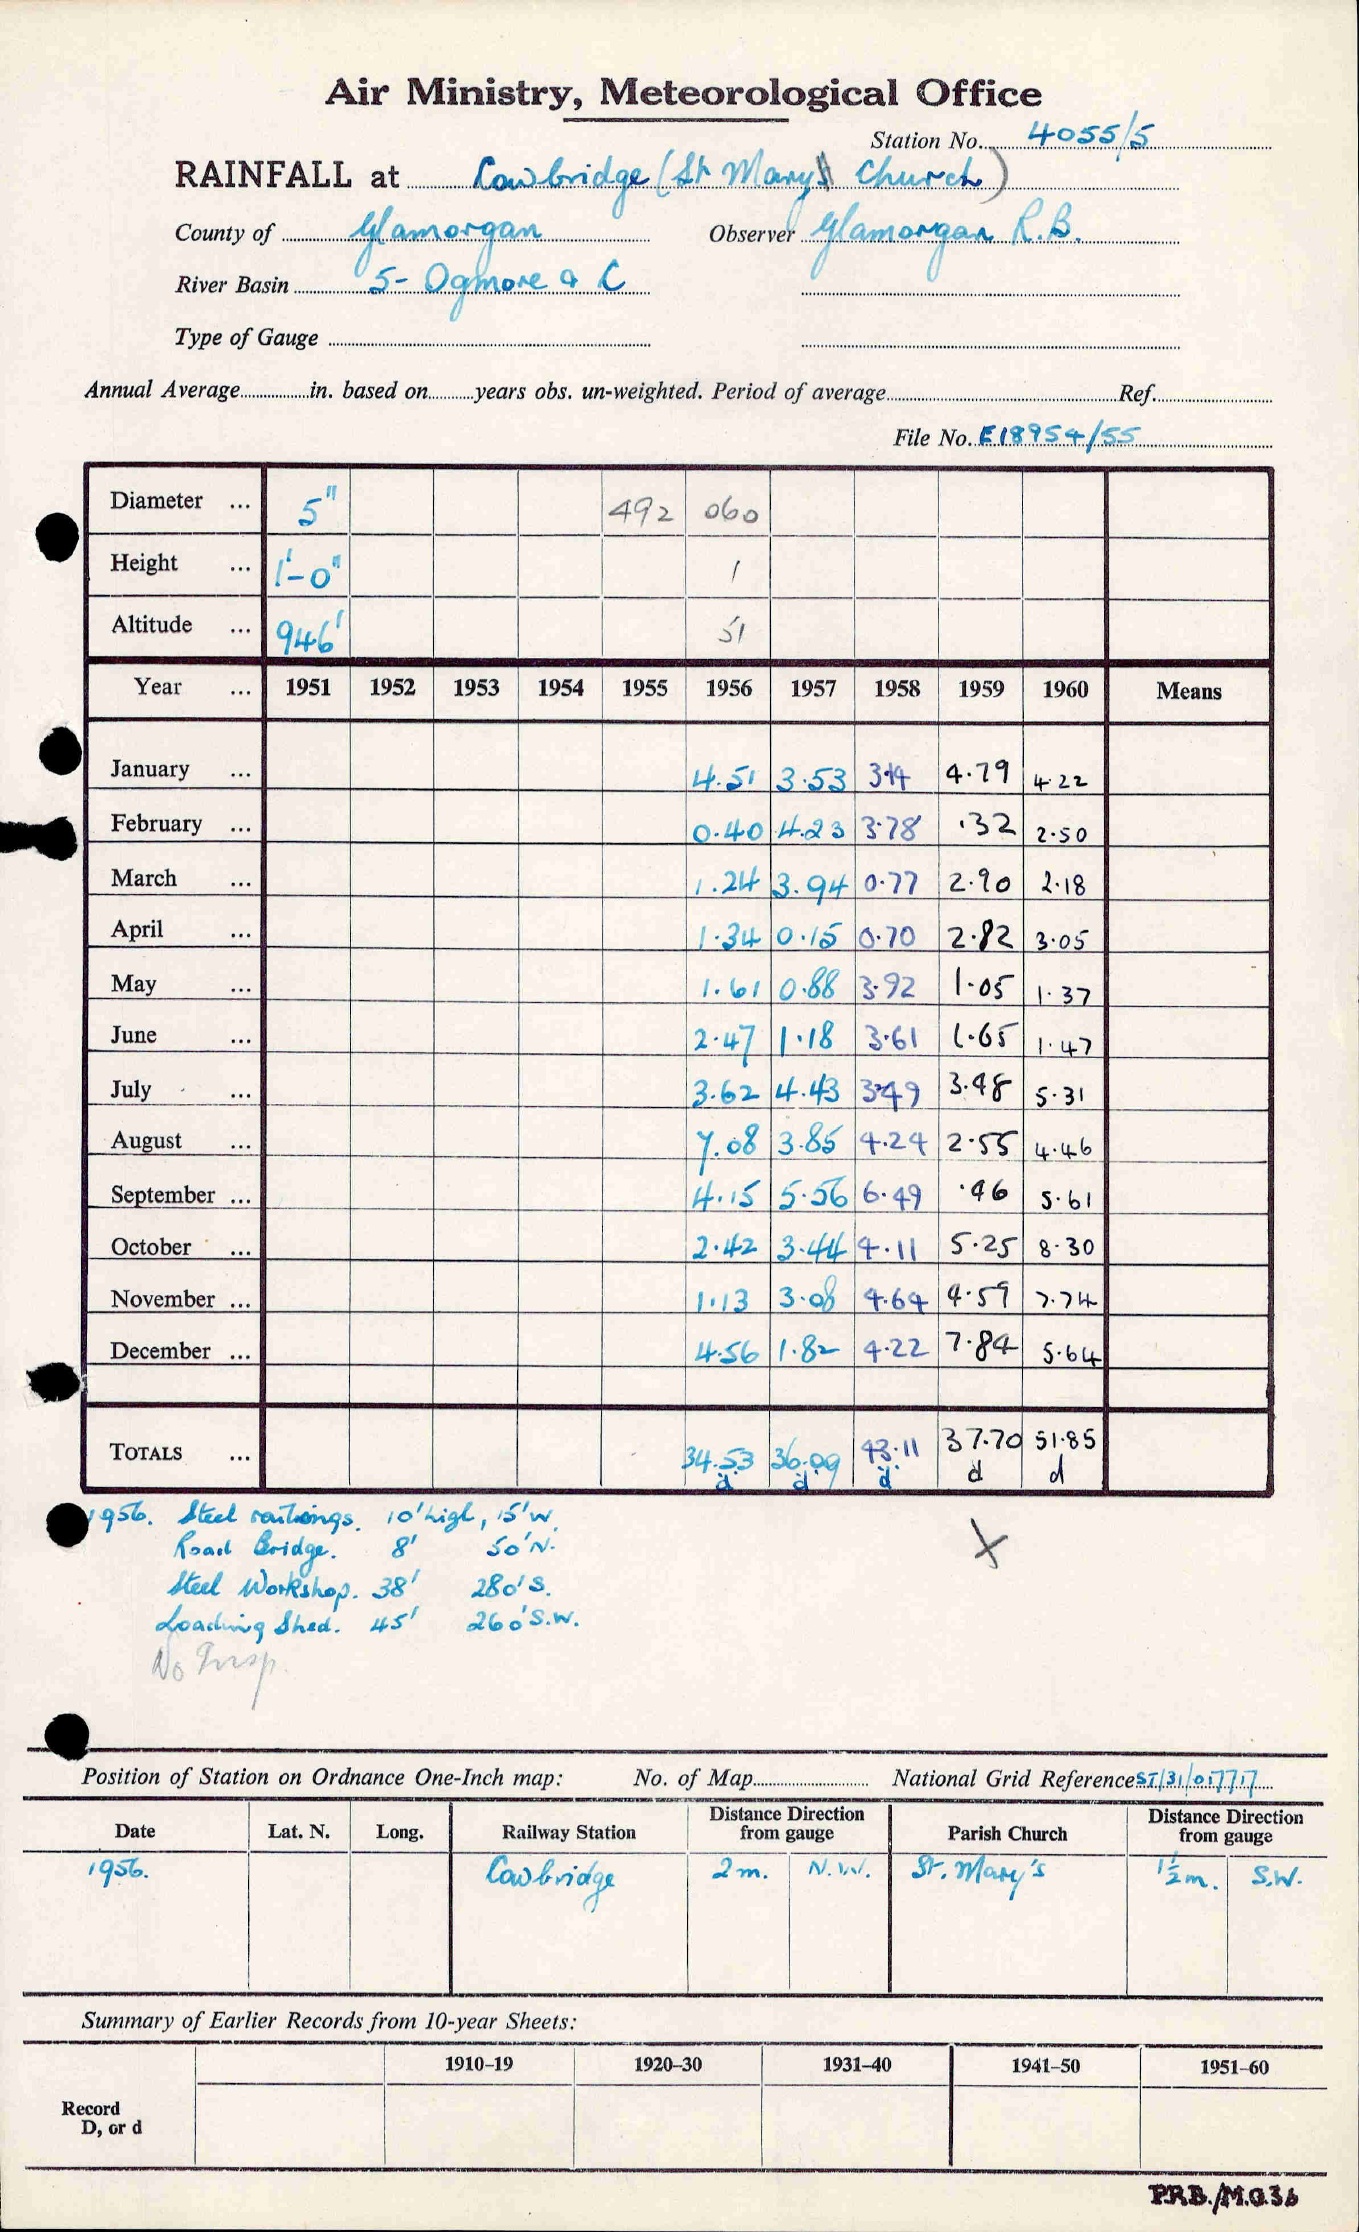 Air Ministry, Meteorological Office
Station No. 4055/5
RAINFALL at Cowbridge (St Mary's Church)
County of Glamorgan Observer Glamorgan R.B.
River Basin 5- Ogmore & C
Type of Gauge
Annual Average in. based on years obs. un-weighted. Period of average Ref.
File No. E18954/55
Diameter ... 5" 492 060
Height ... 1'-0" 1
Altitude ... 946' 51
Year ... 1951 1952 1953 1954 1955 1956 1957 1958 1959 1960 Means
January ... 4.51 3.53 3.14 4.79 4.22
February ... 0.40 4.23 3.78 .32 2.50
March ... 1.24 3.94 0.77 2.90 2.18
April ... 1.34 0.15 0.70 2.82 3.05
May ... 1.61 0.88 3.92 1.05 1.37
June ... 2.47 1.18 3.61 1.65 1.47
July ... 3.62 4.43 3.49 3.48 5.31
August ... 7.08 3.85 4.24 2.55 4.46
September ... 4.15 5.56 6.49 .46 5.61
October ... 2.42 3.44 4.11 5.25 8.30
November ... 1.13 3.08 4.64 4.59 7.74
December ... 4.56 1.82 4.22 7.84 5.64
TOTALS ... 34.53 36.09 43.11 37.70 51.85
d d d d d
1956. Steel railings. 10' high, 15' W. X
Road Bridge. 8' 50' N.
Steel Workshop. 38' 280' S.
Loading Shed. 45' 260' S.W.
No Insp.
Position of Station on Ordnance One-Inch map: No. of Map National Grid Reference ST/31/017717
Date Lat. N. Long. Railway Station Distance Direction from gauge Parish Church Distance Direction from gauge
1956. Cowbridge 2 m. N.W. St. Mary's 1½ m. S.W.
Summary of Earlier Records from 10-year Sheets:
1910–19 1920–30 1931–40 1941–50 1951–60
Record
D, or d
P.R.B./M.O.36